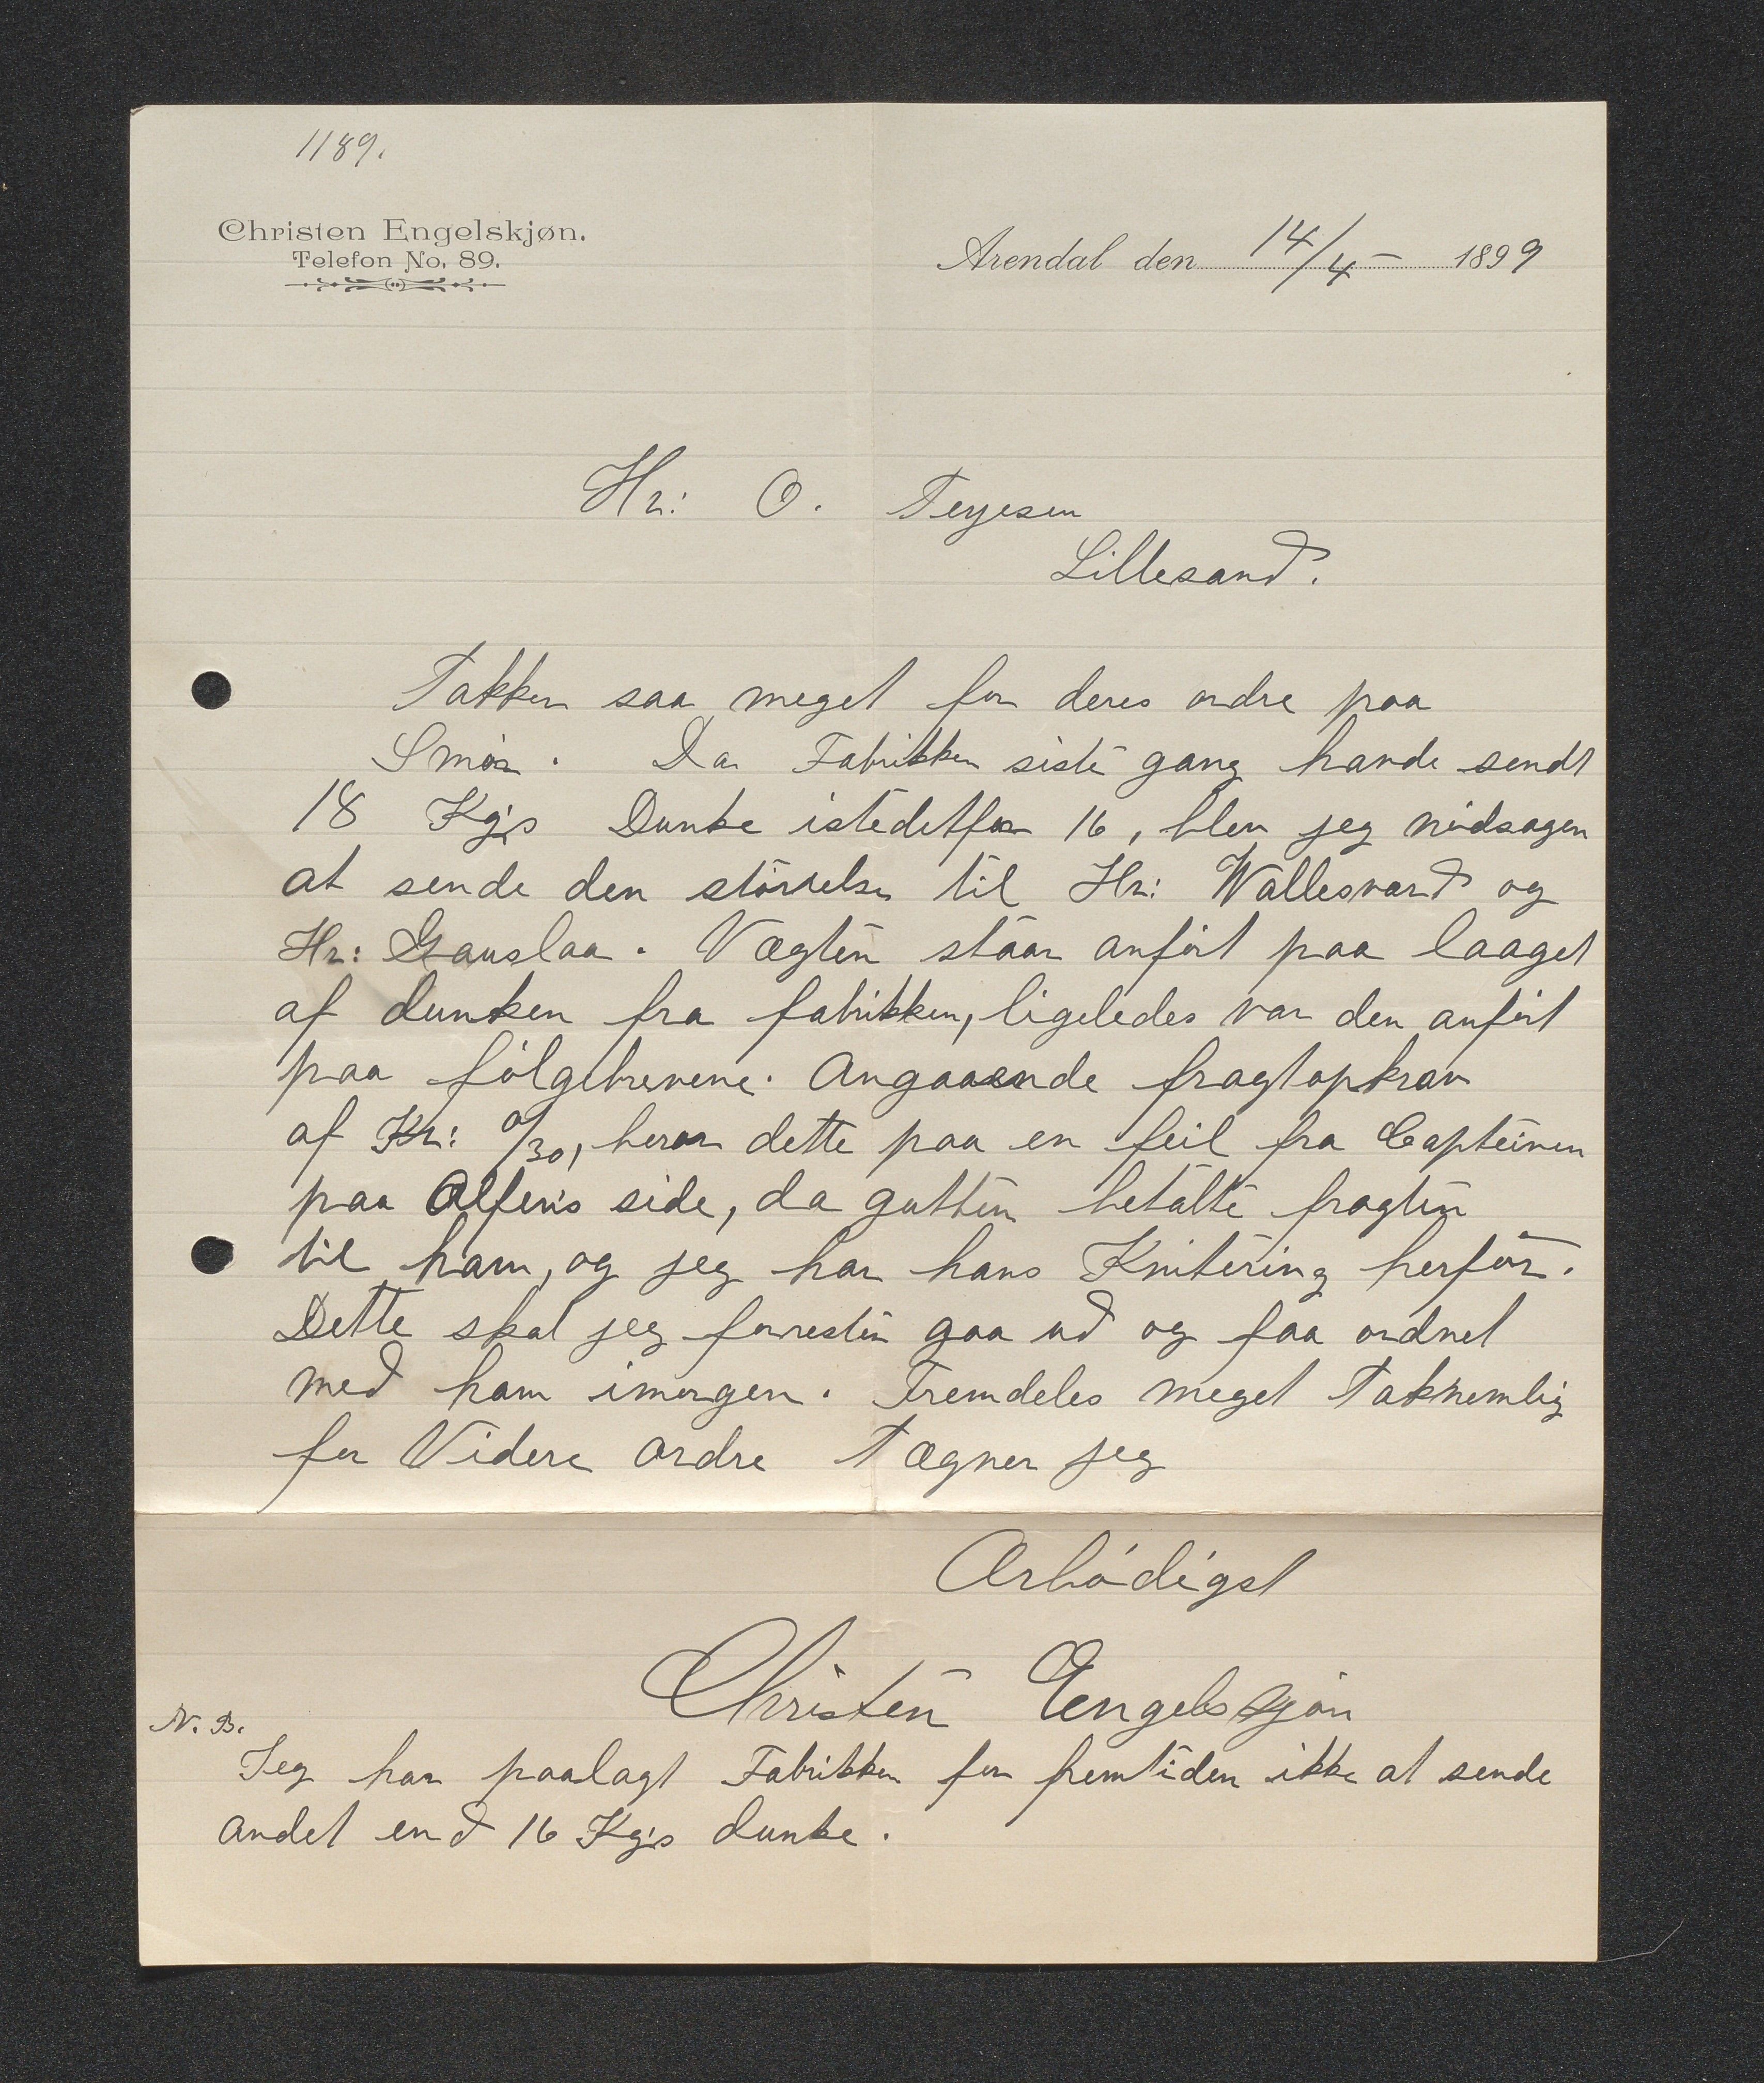 1189.
Christen Engelskjøn.
Telefon No. 89.
Arendal den 14/4 – 1899
Hr: O. Terjesen
Lillesand.
Takker saa meget for deres ordre paa
Smør. Da Fabrikken siste gang havde sendt
18 Kg's Dunke istedetfor 16, blev jeg nødsagen
at sende den størrelse til Hr: Wallesværd og
Hr: Gauslaa. Vægten staar anført paa laaget
af dunken fra fabrikken, ligeledes var den anført
paa følgebrevene. Angaaende fragtopkrav
af Kr: 0/30, beror dette paa en feil fra Capteinen
paa Alfen's side, da gutten betalte fragten
til ham, og jeg har hans Kvitering herfor.
Dette skal jeg forresten gaa ud og faa ordnet
med ham imorgen. Fremdeles meget Taknemlig
for Videre ordre Tægner jeg
Ærbødigst
Christen Engelskjøn
N. B.
Jeg har paalagt Fabrikken for fremtiden ikke at sende
andet end 16 Kg's dunke.